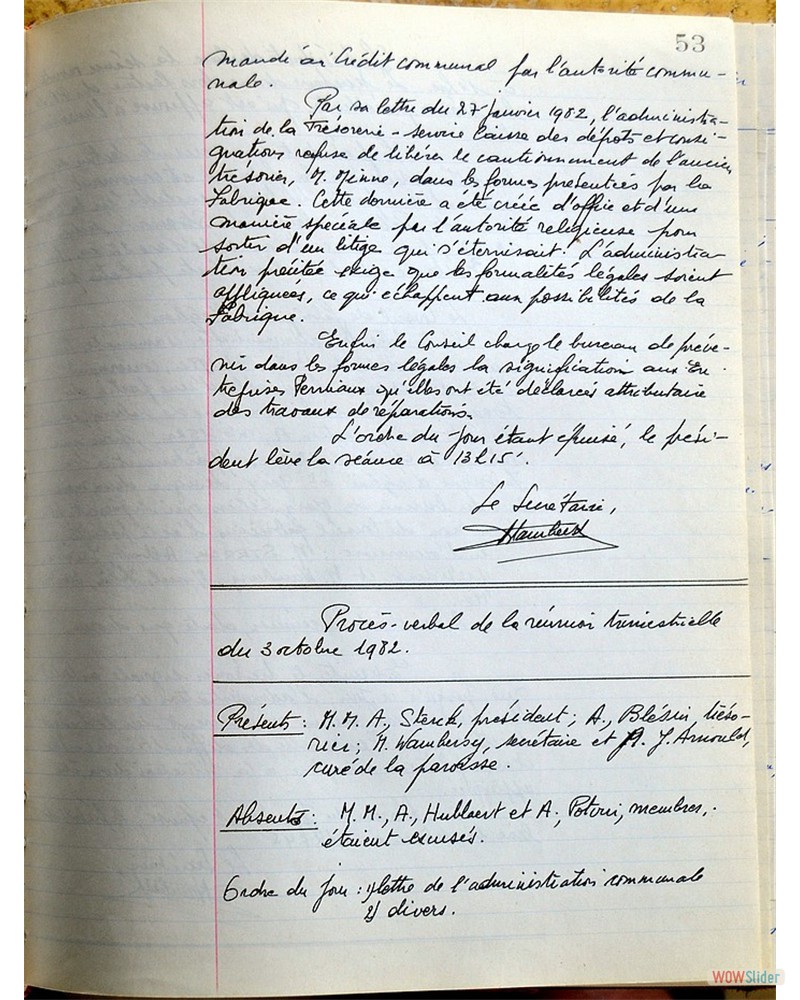 53
mandé au Crédit communal par l'autorité commu-
nale.
Par sa lettre du 27 janvier 1982, l'administra-
tion de la Trésorerie - service caisse des dépôts et consi-
gnations refuse de libérer le cautionnement de l'ancien
trésorier, M. Minne, dans les formes présentées par la
Fabrique. Cette dernière a été créée d'office et d'une
manière spéciale par l'autorité religieuse pour
sortir d'un litige qui s'éternisait. L'administra-
tion précitée exige que les formalités légales soient
appliquées, ce qui échappent aux possibilités de la
Fabrique.
Enfin le Conseil charge le bureau de préve-
nir dans les formes légales la signification aux En-
treprises Perniaux qu'elles ont été déclarées attributaire
des travaux de réparations.
L'ordre du jour étant épuisé, le prési-
dent lève la séance à 13h15'.
Le Secrétaire,
Procès-verbal de la réunion trimestrielle
du 3 octobre 1982.
Présents : M.M. A, Sterck, président ; A, Blésin, tréso-
rier; M. Wambersy, secrétaire et J. Arnould,
curé de la paroisse.
Absents : M.M., A, Hublaert et A, Potvin, membres,
étaient excusés.
Ordre du jour : 1) lettre de l'administration communale
2) divers.
WOWSlider